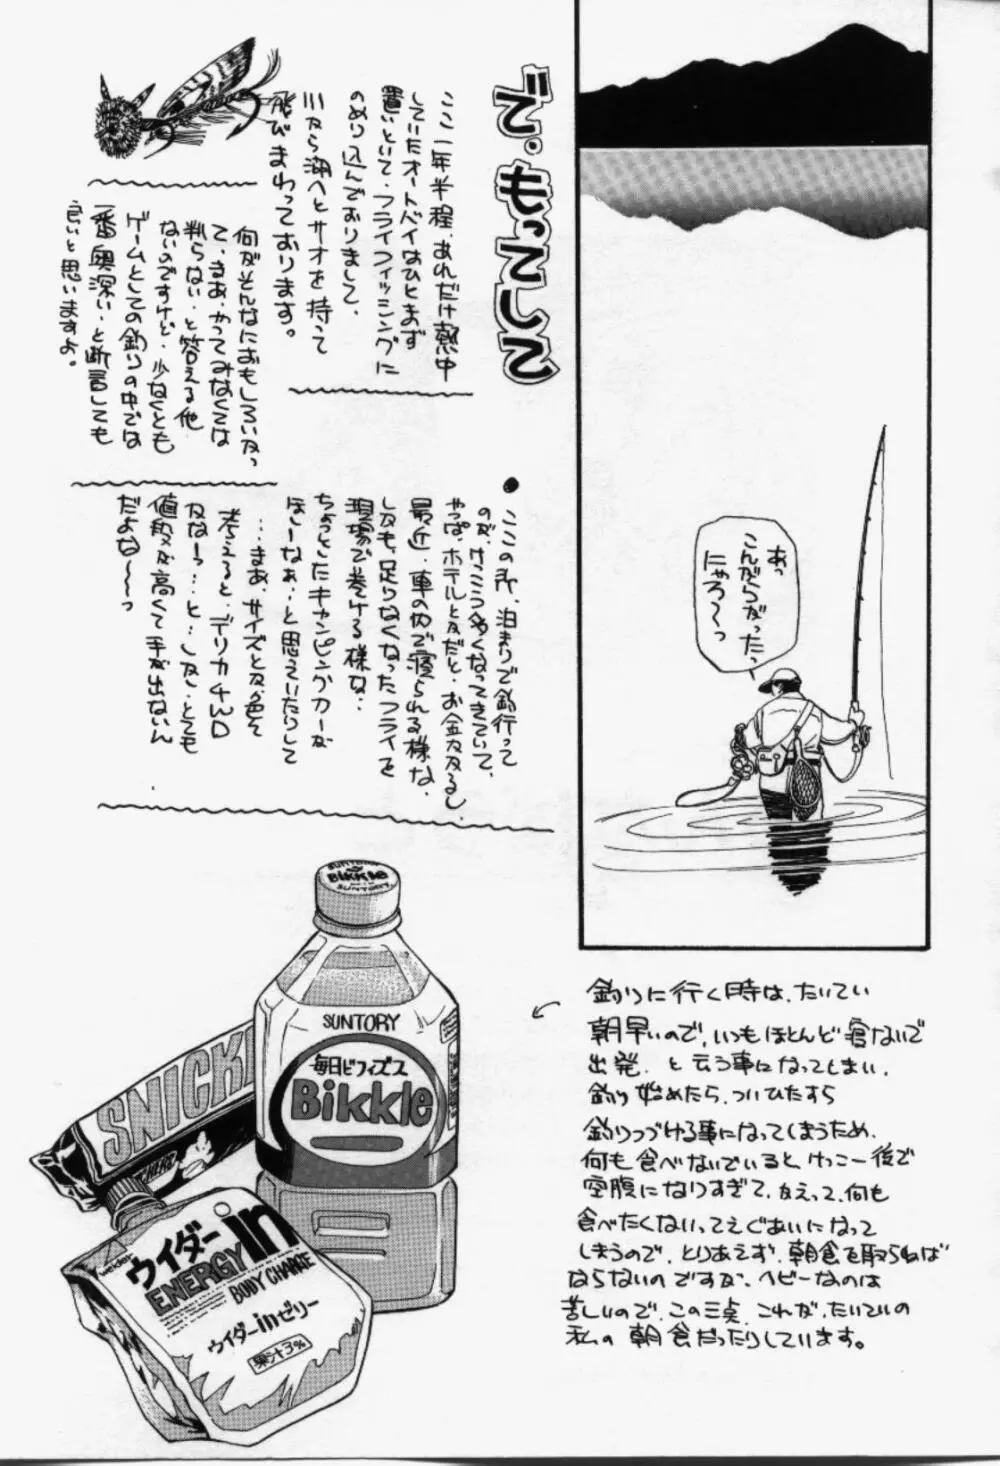 で・もってして
ここ一年半程、あれだけ熱中
していたオートバイはひとまず
置いといて、フライフィッシングに
のめり込んでおりまして、
川から湖へとサオを持って
飛びまわっております。
何がそんなにおもしろいかっ
て、まあ、やってみなくては
判らない、と答える他
ないのですけど、少なくとも
ゲームとしての釣りの中では
一番奥深い、と断言しても
良いと思いますよ。
あっ
こんがらがったっ
にゃろ〜っ
・ここの所、泊まりで釣行って
のが、けっこう多くなってきていて、
やっぱ、ホテルとかだと、お金かかるし
最近、車の中で寝られる様な、
しかも、足りなくなったフライを
現場で巻ける様な…
ちょっとしたキャンピングカーが
ほしーなぁ…と思えていたりして
…まあ、サイズとか、色々
考えると、デリカ4WD
かなーっ…と…しかし、とても
値段が高くて手が出ないん
だよね〜〜っ
釣りに行く時は、たいてい
朝早いので、いつもほとんど寝ないで
出発、と云う事になってしまい、
釣り始めたら、ついひたすら
釣りつづける事になってしまうため、
何も食べないでいると、けっこー後で
空腹になりすぎて、かえって、何も
食べたくないってえぐあいになって
しまうので、とりあえず、朝食を取らねば
ならないのですが、ヘビーなのは
苦しいので、この三点、これが、たいていの
私の朝食だったりしています。
SUNTORY
Bikkle
SUNTORY
SUNTORY
毎日ビフィズス
Bikkle
SNICK
weider
ウイダーin
ENERGY
BODY CHARGE
ウイダーinゼリー
果汁3%